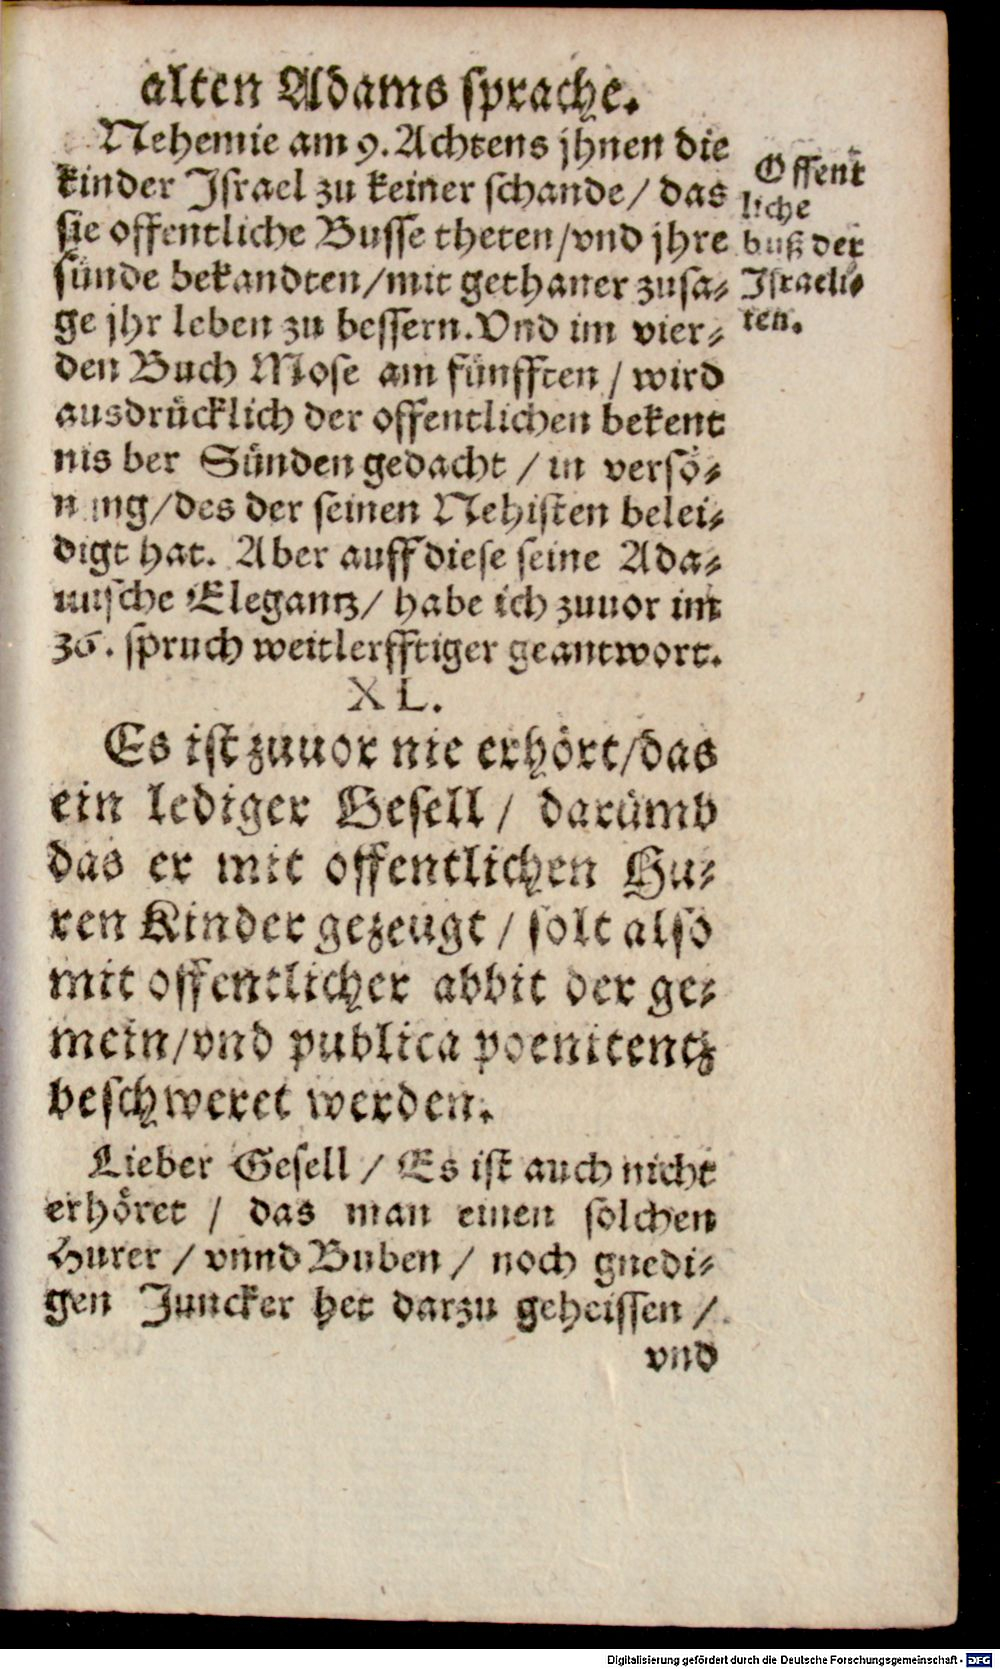 alten Adams sprache.
Nehemie am 9. Achtens jhnen die
kinder Israel zu keiner schande/ das
sie offentliche Busse theten/vnd jhre
sünde bekandten/mit gethaner zusa-
ge jhr leben zu bessern. Vnd im vier-
den Buch Mose am fünfften / wird
ausdrücklich der offentlichen bekent
nis der Sünden gedacht / in versö-
nung/des der seinen Nehisten belei-
digt hat. Aber auff diese seine Ada-
mische Elegantz/ habe ich zuuor im
36. spruch weitlerfftiger geantwort.
Offent
liche
buß der
Israeli-
ten.
XL.
Es ist zuuor nie erhört/das
ein lediger Gesell / darümb
das er mit offentlichen Hu-
ren Kinder gezeugt / solt also
mit offentlicher abbit der ge-
mein/vnd publica poenitentz
beschweret werden.
Lieber Gesell / Es ist auch nicht
erhöret / das man einen solchen
Hurer / vnnd Buben / noch gnedi-
gen Juncker het darzu geheissen /
vnd
Digitalisierung gefördert durch die Deutsche Forschungsgemeinschaft - DFG